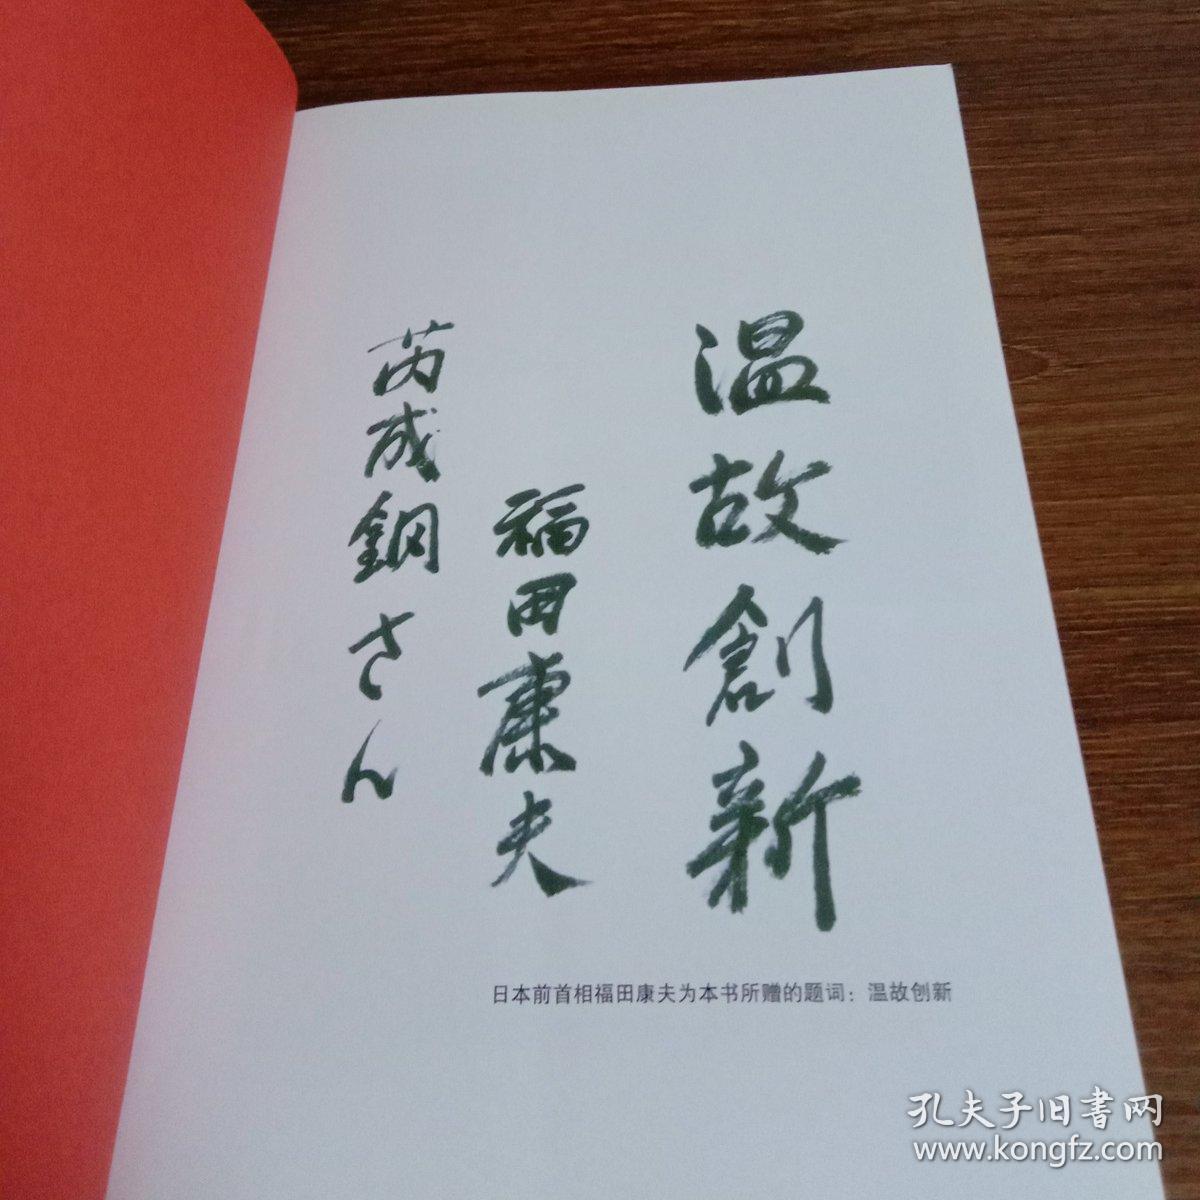 温故創新
福田康夫
芮成鋼さん
日本前首相福田康夫为本书所赠的题词：温故创新
孔夫子旧書网
www.kongfz.com